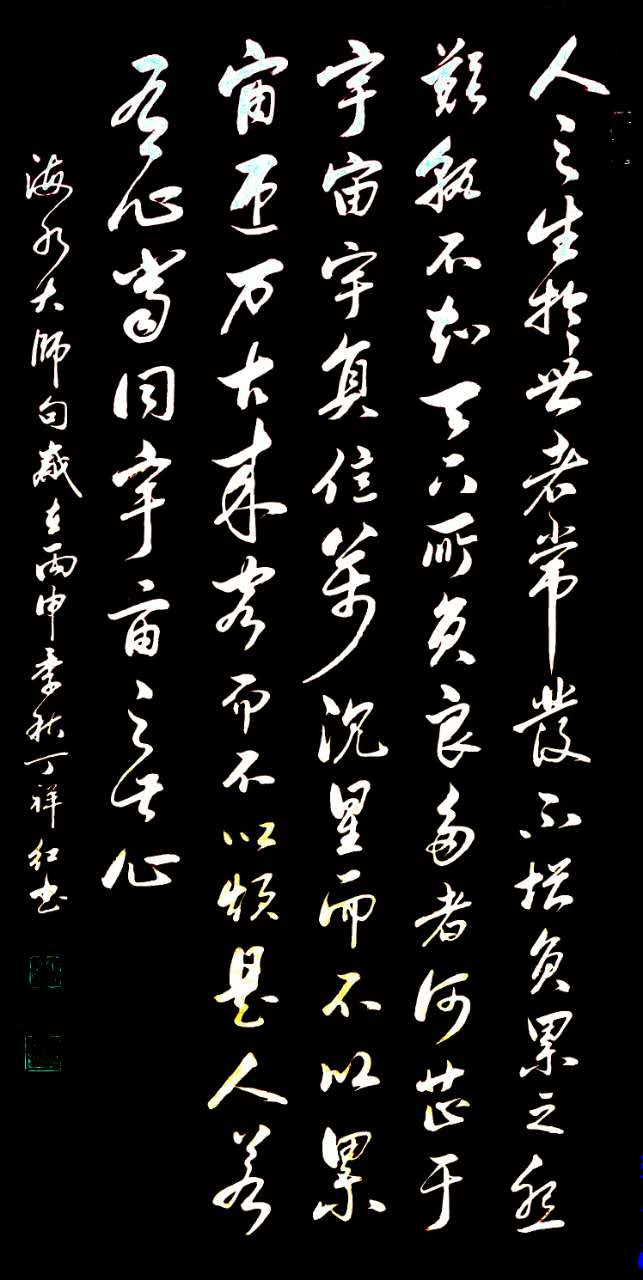 人之生於世者常發不堪負累之怨
歎孰不知天下所負良多者何甚于
宇宙宇負億萬沉星而不以累
宙迎万古來客而不以煩是人若
有心當同宇宙之其心
海水大師句歲在丙申季秋丁祥红书